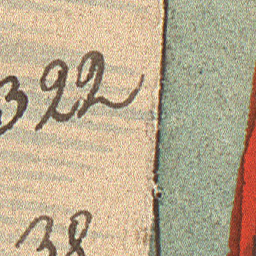 322
38